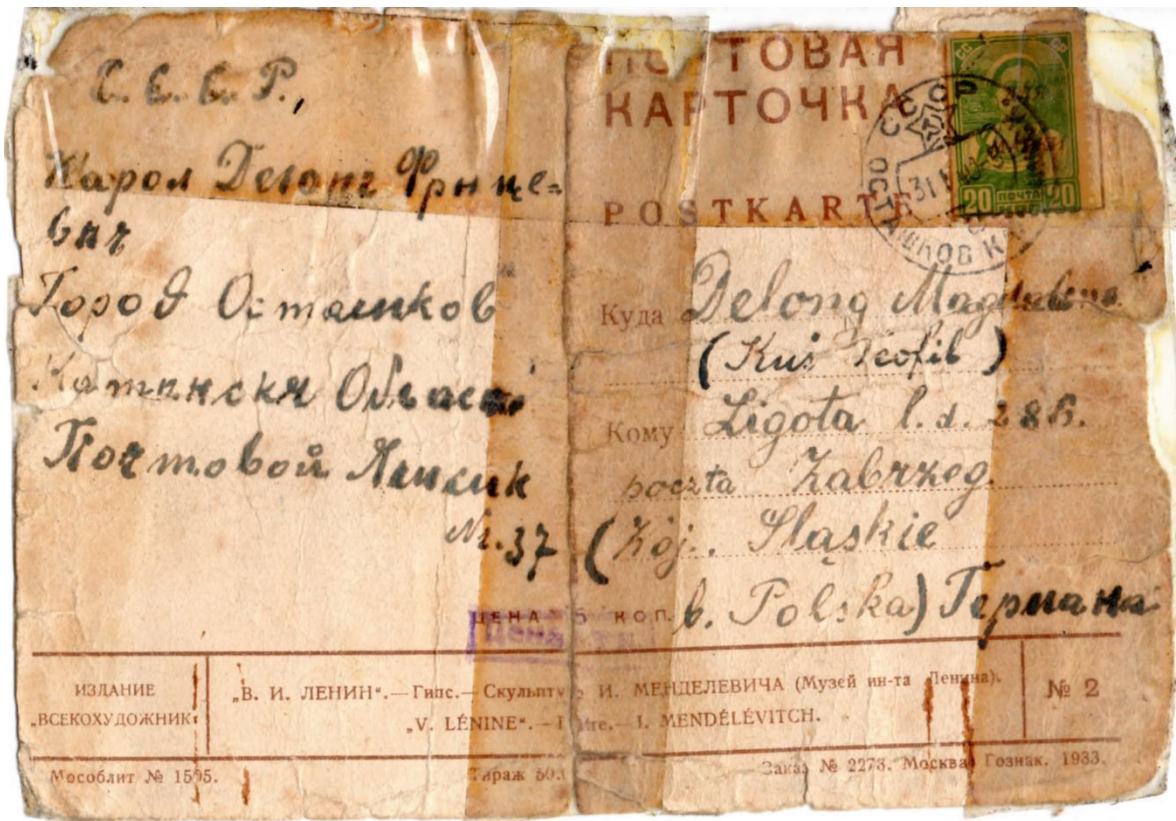 С. С. С. Р.,
Карол Делонг Францe-
вич
Город Осташков
Область
Почтовой
№. 37
ПОЧТОВАЯ
КАРТОЧКА
POSTKARTE
СССР
20 ПОЧТА 20
СССР
31
ОСТАШКОВ
Куда Delong Magdalena
(Kuś Teofil)
Кому Ligota l.d. 286.
poczta Zabrzeg.
(Woj. Śląskie
b. Polska) Германа
ЦЕНА 5 КОП.
ИЗДАНИЕ
„ВСЕКОХУДОЖНИК“
„В. И. ЛЕНИН“.—Гипс.—Скульптура И. МЕНДЕЛЕВИЧА (Музей ин-та Ленина).
„V. LÉNINE“.— I. MENDÉLÉVITCH.
№ 2
Мособлит № 1595.
Тираж
Заказ № 2273. Москва Гознак. 1933.